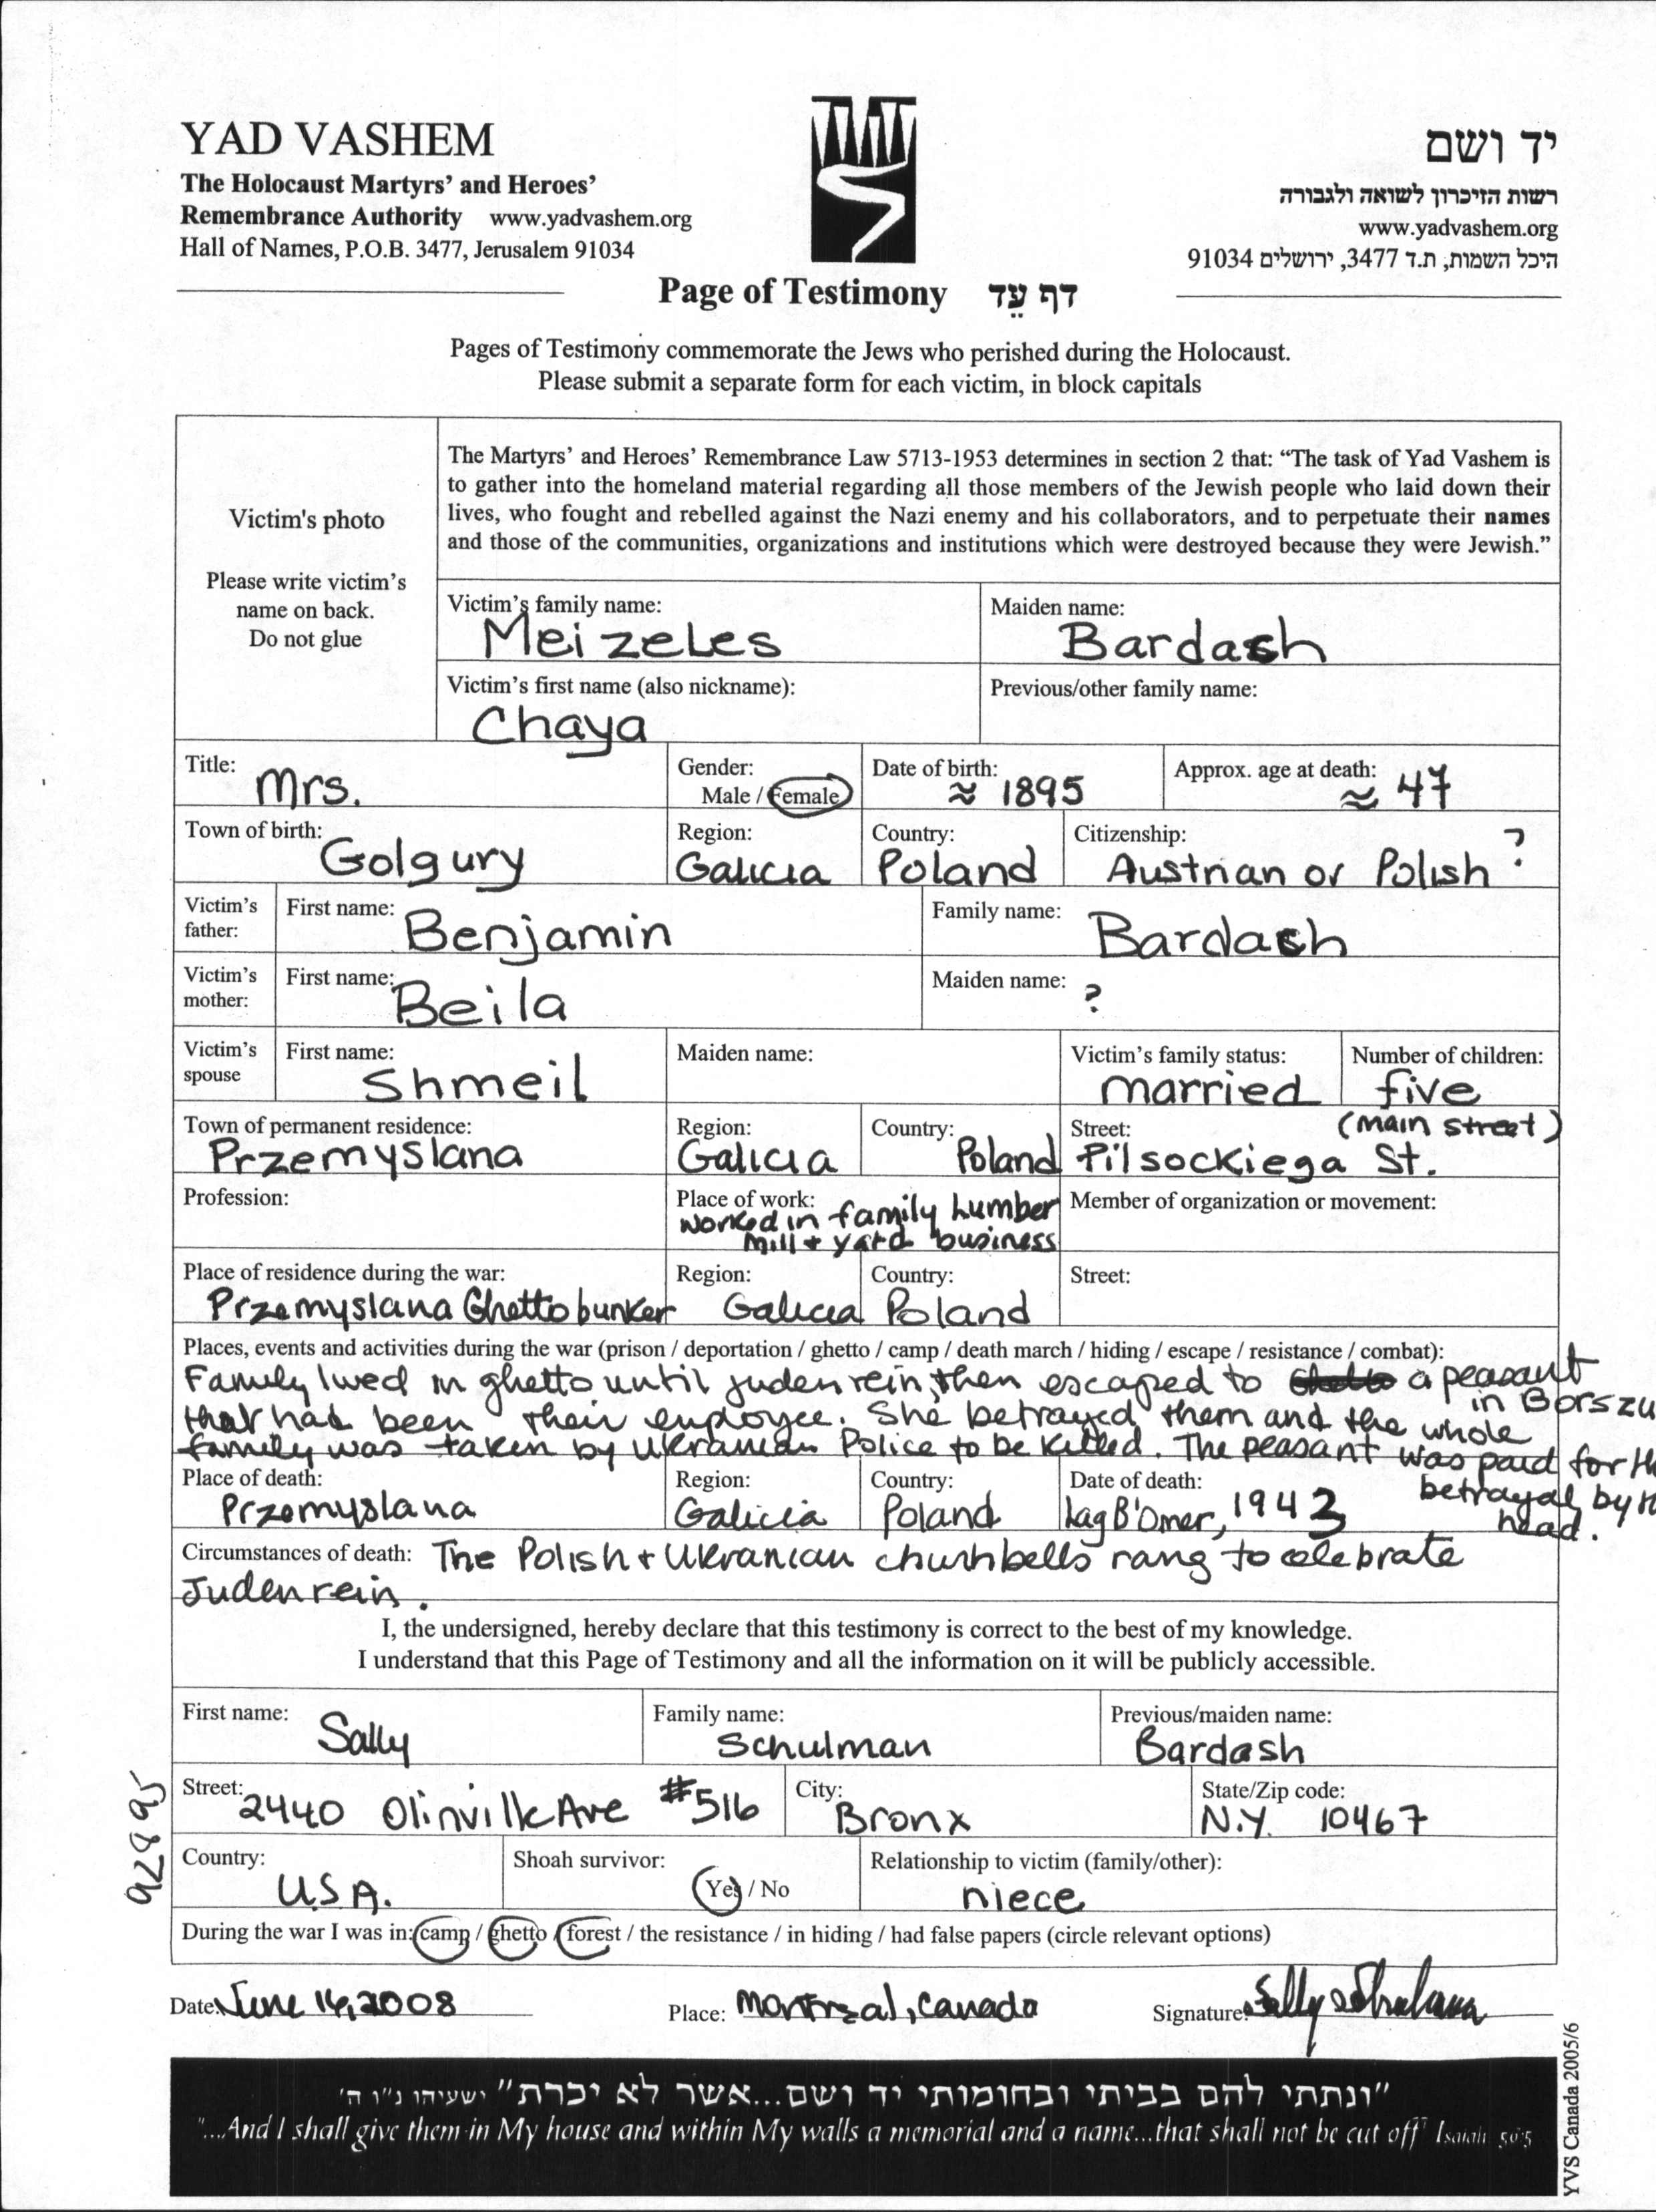 YAD VASHEM
The Holocaust Martyrs' and Heroes'
Remembrance Authority www.yadvashem.org
Hall of Names, P.O.B. 3477, Jerusalem 91034
יד ושם
רשות הזיכרון לשואה ולגבורה
www.yadvashem.org
היכל השמות, ת.ד 3477, ירושלים 91034
Page of Testimony דף עֵד
Pages of Testimony commemorate the Jews who perished during the Holocaust.
Please submit a separate form for each victim, in block capitals
Victim's photo
Please write victim's
name on back.
Do not glue
The Martyrs' and Heroes' Remembrance Law 5713-1953 determines in section 2 that: “The task of Yad Vashem is
to gather into the homeland material regarding all those members of the Jewish people who laid down their
lives, who fought and rebelled against the Nazi enemy and his collaborators, and to perpetuate their names
and those of the communities, organizations and institutions which were destroyed because they were Jewish.”
Victim's family name: Maiden name:
Meizeles Bardash
Victim's first name (also nickname): Previous/other family name:
Chaya
Title: Gender: Date of birth: Approx. age at death:
Mrs. Male / Female ≈ 1895 ≈ 47
Town of birth: Region: Country: Citizenship:
Golgury Galicia Poland Austrian or Polish ?
Victim's father: First name: Benjamin Family name: Bardash
Victim's mother: First name: Beila Maiden name: ?
Victim's spouse First name: Maiden name: Victim's family status: Number of children:
Shmeil married five
Town of permanent residence: Region: Country: Street: (main street)
Przemyslana Galicia Poland Pilsockiega St.
Profession: Place of work: Member of organization or movement:
worked in family Lumber
mill + yard business
Place of residence during the war: Region: Country: Street:
Przemyslana Ghetto bunker Galicia Poland
Places, events and activities during the war (prison / deportation / ghetto / camp / death march / hiding / escape / resistance / combat):
Family lived in ghetto until juden rein, then escaped to a peasant
in Borszu
that had been their employee. She betrayed them and the whole
family was taken by Ukranian Police to be killed. The peasant was paid for
betrayal by
head.
Place of death: Region: Country: Date of death:
Przemyslana Galicia Poland Lag B'Omer, 1943
Circumstances of death: The Polish + Ukranian churhbells rang to celebrate
Judenrein.
I, the undersigned, hereby declare that this testimony is correct to the best of my knowledge.
I understand that this Page of Testimony and all the information on it will be publicly accessible.
First name: Family name: Previous/maiden name:
Sally Schulman Bardash
Street: City: State/Zip code:
2440 Olinville Ave #516 Bronx N.Y. 10467
Country: Shoah survivor: Relationship to victim (family/other):
U.S.A. Yes / No niece
During the war I was in: camp / ghetto / forest / the resistance / in hiding / had false papers (circle relevant options)
Date: June 16, 2008 Place: Montreal, Canada Signature: Sally Schulman
92895
"ונתתי להם בביתי ובחומותי יד ושם...אשר לא יכרת" ישעיהו נ"ו ה'
"...And I shall give them in My house and within My walls a memorial and a name...that shall not be cut off" Isaiah 56:5
YVS Canada 2005/6